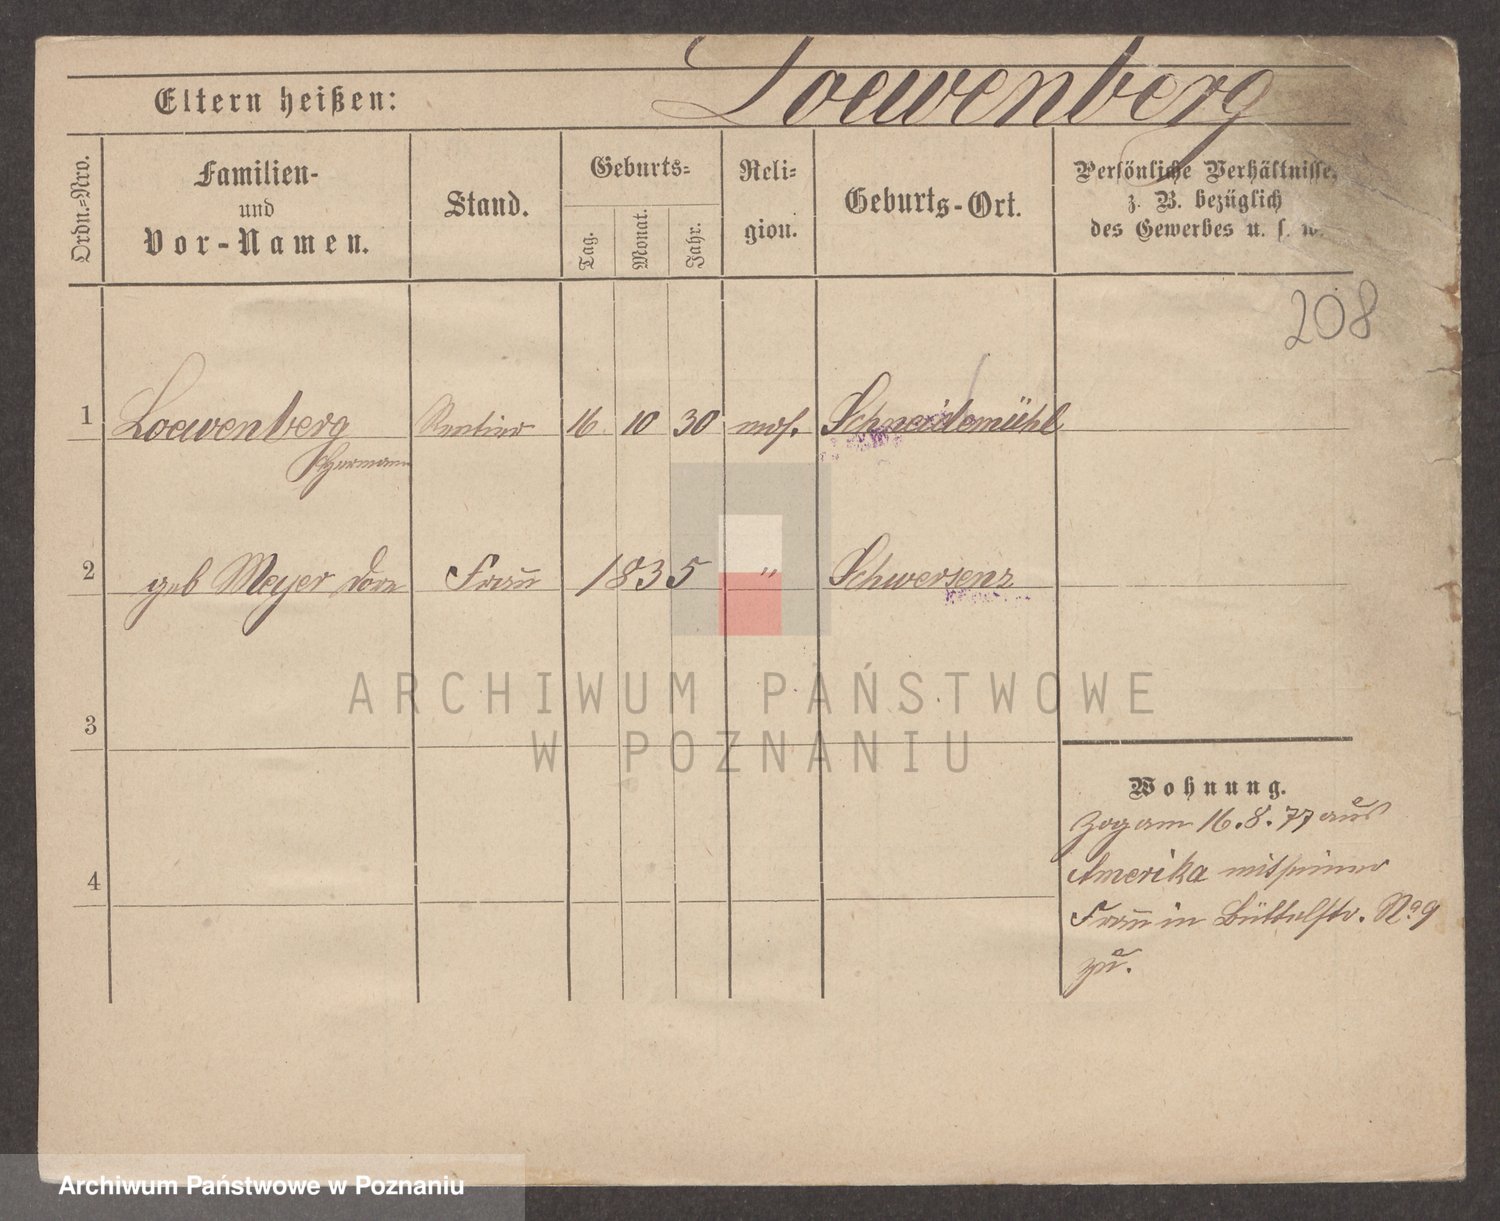 Loewenberg
Eltern heißen:
Ordn.=Nro.
Familien-
und
Vor-Namen.
Stand.
Geburts=
Tag.
Monat.
Jahr.
Reli=
gion.
Geburts-Ort.
Persönliche Verhältnisse,
z. B. bezüglich
des Gewerbes u. s. w.
208
1 Loewenberg Rentier 16 10 30 mos. Schneidemühl
Hermann
2 geb Meyer Dore Frau 1835 " Schwersenz
ARCHIWUM PAŃSTWOWE
W POZNANIU
3
Wohnung.
Zog am 16.8.77 aus
Amerika mit seiner
Frau in Büttelstr. No 9
zu.
4
Archiwum Państwowe w Poznaniu